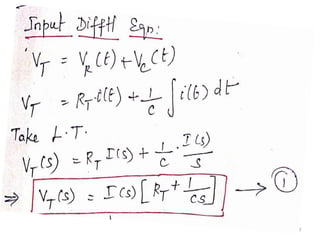 Input Diff4l Eqn:
V_T = V_R(t) + V_C(t)
V_T = R_T·i(t) + 1/C ∫ i(t) dt
Take L.T.
V_T(s) = R_T I(s) + 1/C · I(s)/s
⇒ V_T(s) = I(s) [R_T + 1/Cs] → ①